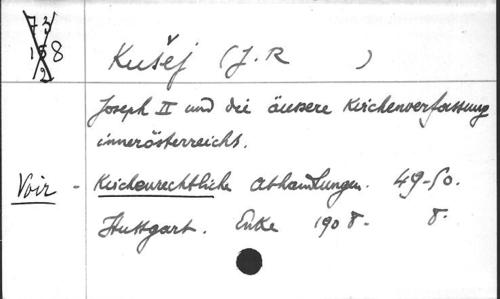 73
158
2
Kušej (J. R )
Joseph II und die äussere Kirchenverfassung
innerösterreichs.
Voir - Kirchenrechtliche Abhandlungen. 49-50.
Stuttgart. Enke 1908. 8.